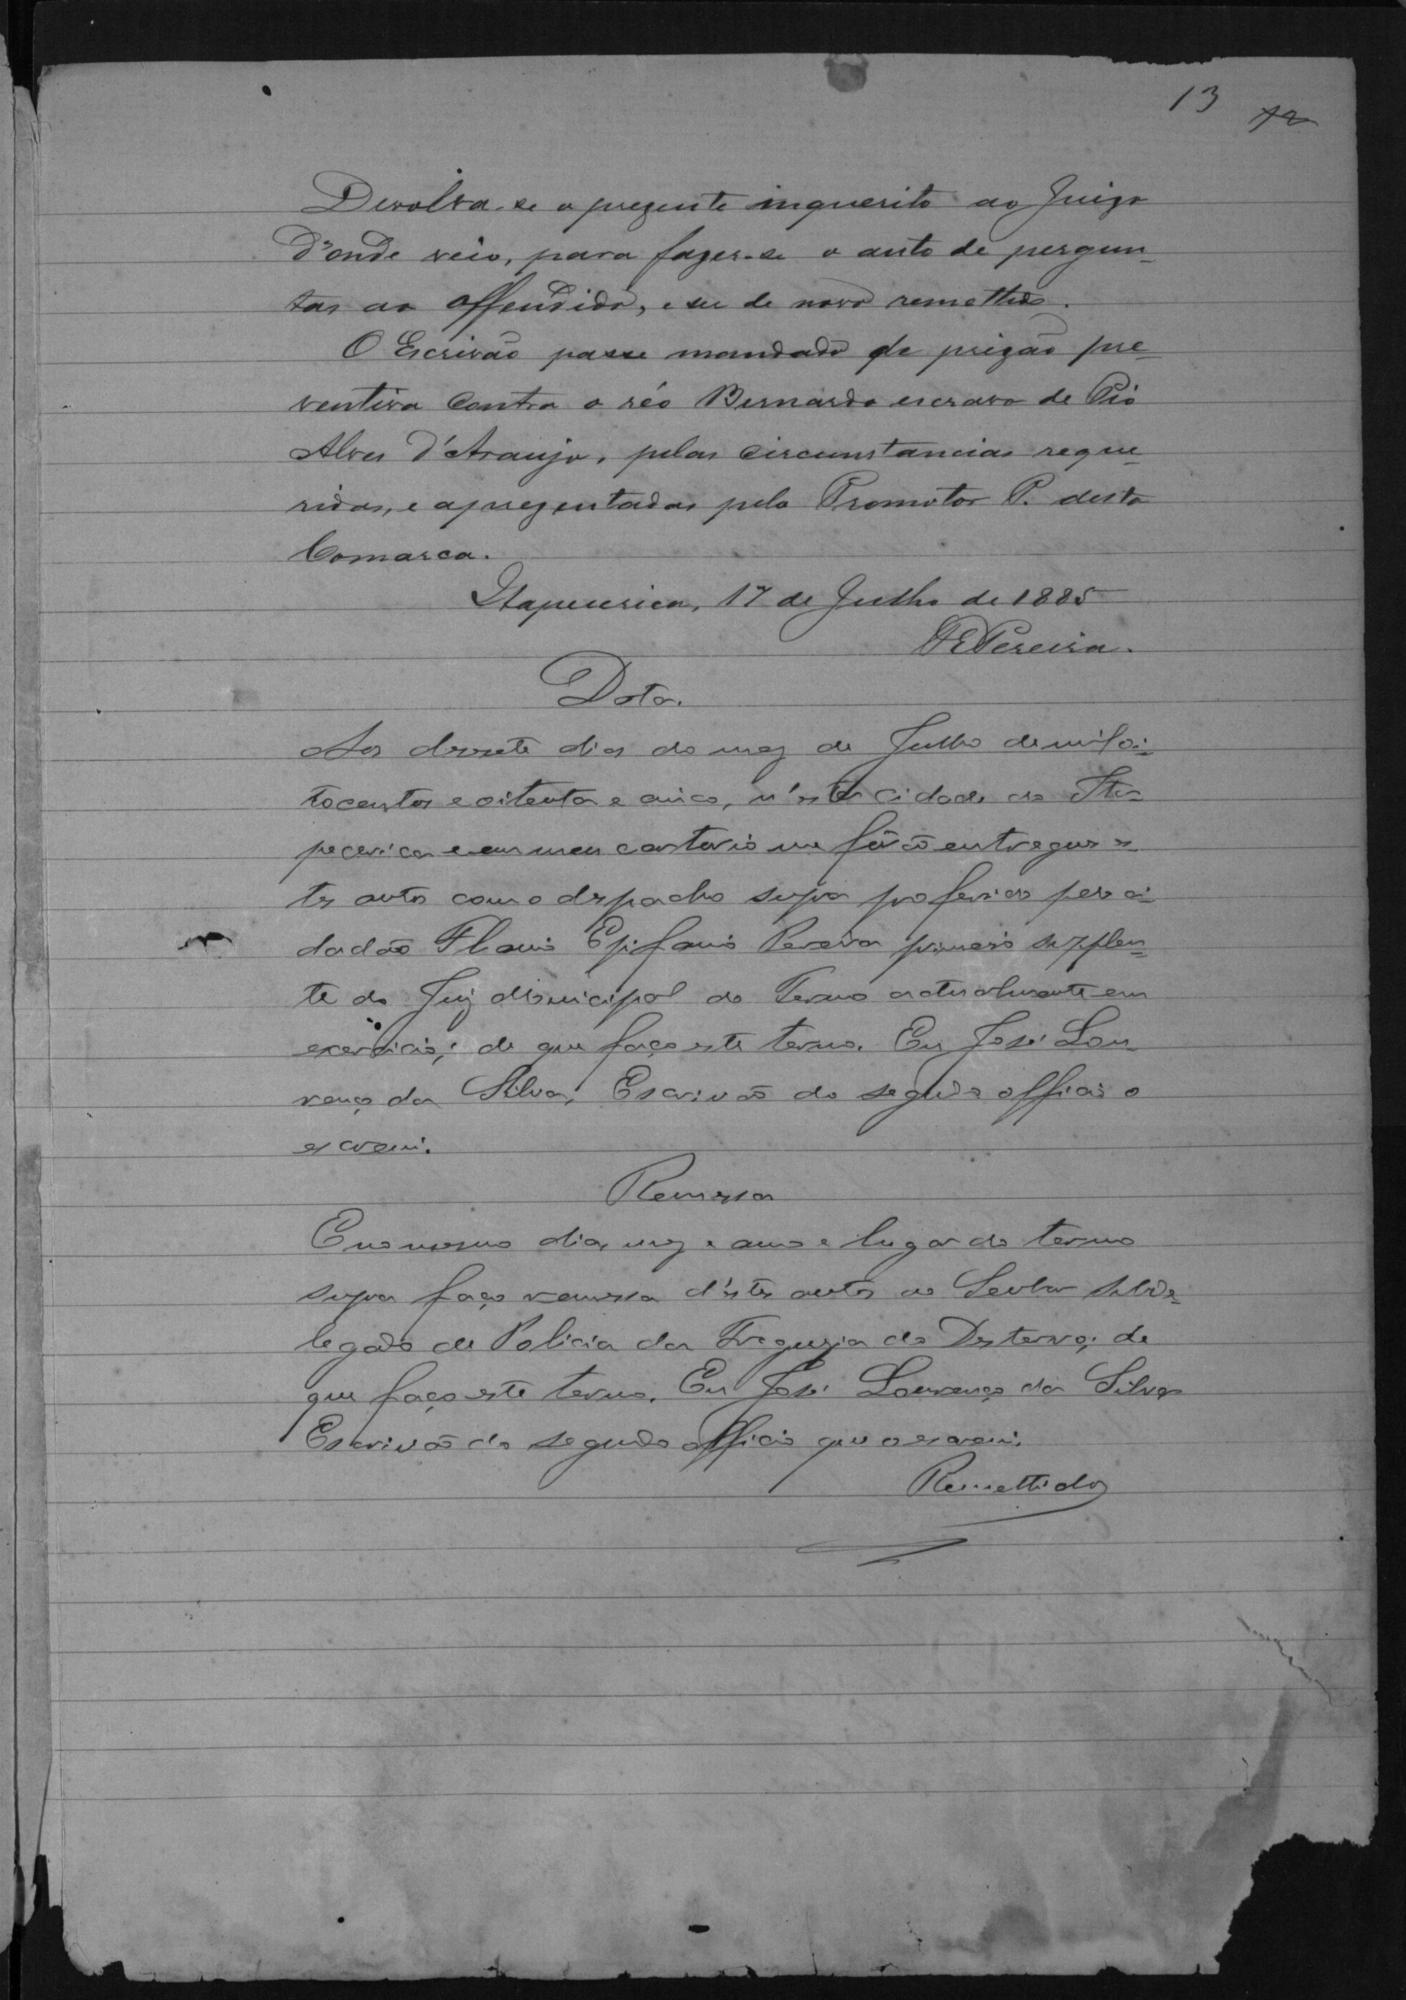 13 12
Devolva-se o prezente inquerito ao Juizo
d'onde veio, para fazer-se o auto de pergun-
tas ao offendido, e ser de novo remettido.
O Escrivão passe mandado de prizão pre-
ventiva contra o réo Bernardo escravo de Pio
Alves d'Araujo, pelas circunstancias reque-
ridas, e aprezentadas pelo Promotor P. desta
Comarca.
Itapecerica, 17 de Julho de 1885
F E Pereira.
Data.
Aos dezsete dias do mez de Julho de mil oi-
tocentos e oitenta e cinco, n'esta cidade de Ita-
pecerica e em meu cartorio me forão entregues es-
tes autos com o despacho supra proferido pelo ci-
dadão Flavio Epifanio Pereira primeiro supplen-
te do Juiz Municipal do Termo actualmente em
exercicio; de que faço este termo. Eu José Lou-
renço da Silva, Escrivão do segundo officio o
escrevi.
Remessa
E no mesmo dia, mez e anno e lugar do termo
supra faço remessa d'estes autos ao Senhor subde-
legado de Policia da Freguezia do Desterro; de
que faço este termo. Eu José Lourenço da Silva
Escrivão do segundo officio que o escrevi.
Remettidos